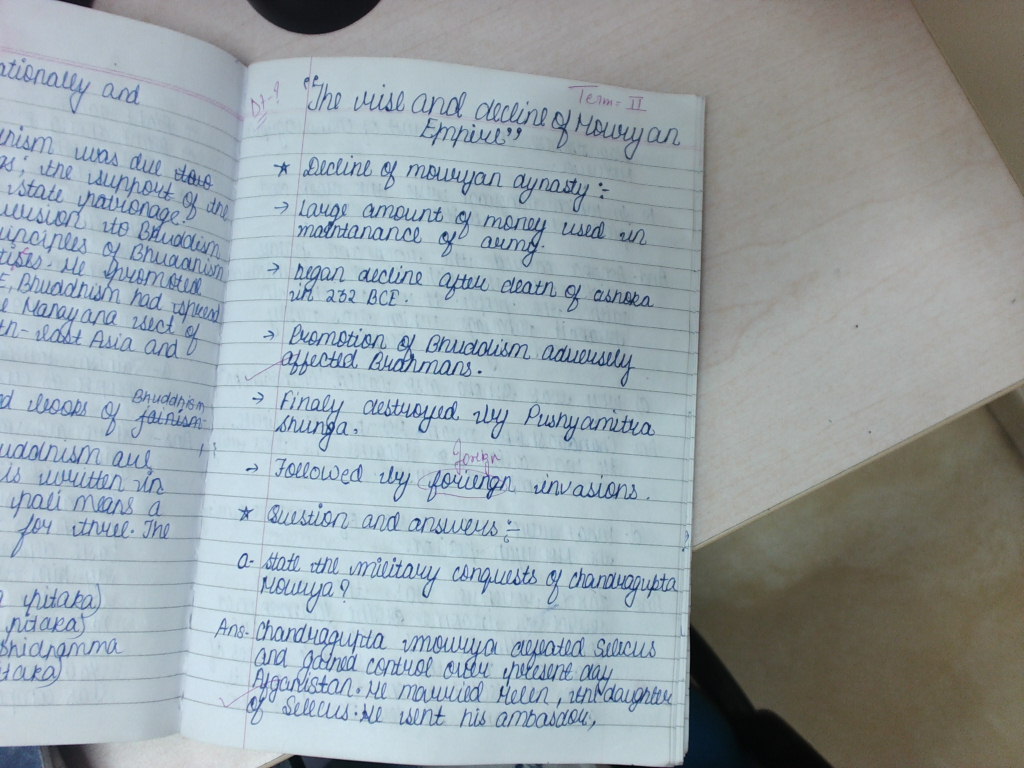 ationally and
nism was due
gs; the support of the
state patronage.
version to Bhuddism
rinciples of Bhuddhism
tists. He promoted
E, Bhuddnism had spread
e Hanayana sect of
th-east Asia and
Bhuddnism
ed books of jainism
uddnism are
is written in
pali means a
for three. The
a pitaka)
pitaka)
bhidhamma
itaka)
Dt-?
Term- II
"The rise and decline of Mouryan
Empire"
★ Decline of mouryan dynasty :-
→ Large amount of money used in
maintanance of army.
→ began decline after death of ashoka
in 232 BCE.
→ Promotion of Bhuddism adversely
affected Brahmans.
→ Finaly destroyed by Pushyamitra
shunga.
foreign
→ Followed by foriengn invasions.
★ Question and answers :-
Q- State the military conquests of chandragupta
Mourya?
Ans- Chandragupta mourya defeated Selecus
and gained control over present day
Afganistan. He married Helen, the daughter
of Selecus. He sent his ambasdor,